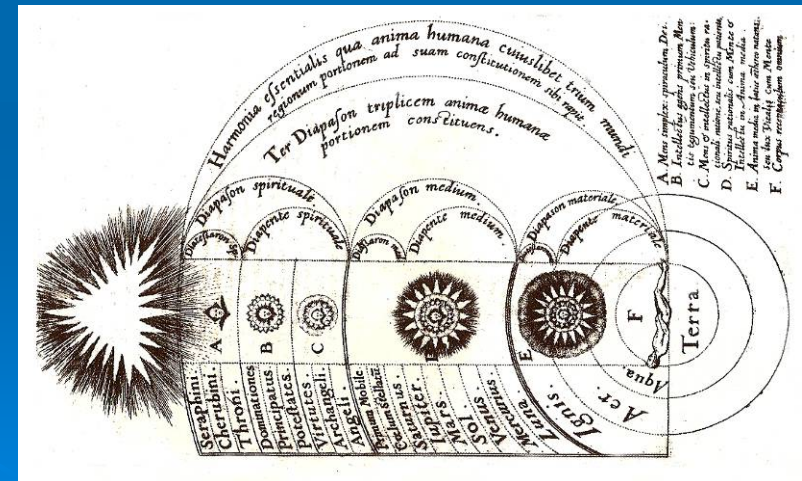 Harmonia eſſentialis qua anima humana cuiuslibet trium mundi
regionum portionem ad suam conſtitutionem sibi rapit.
Ter Diapaſon triplicem animæ humanæ
portionem conſtituens.
Diapaſon spirituale.
Diapente spirituale
Diapaſon medium.
Diapente medium.
Diapason materiale
Diapente materiale
A
B
C
E
F
Terra
Aqua.
Aer.
Ignis.
Seraphini.
Cherubini.
Throni.
Dominationes
Principatus
Poteſtates.
Virtutes
Archangeli.
Angeli.
Primum Mobile.
Saturnus.
Iupiter.
Mars.
Sol
Venus
Mercurius
Luna
A. Mens simplex: spiraculum Dei.
B. Intellectus agens primum Men-
tis tegumentum, seu Vehiculum.
C. Mens & intellectus in spiritu ra-
tionali, ratione, seu intellectu patiente.
D. Spiritus rationalis cum Mente &
Intellectu in Anima media
E. Anima media, in natans:
seu lux Vitalis cum Mente
F. Corpus receptaculum omnium.